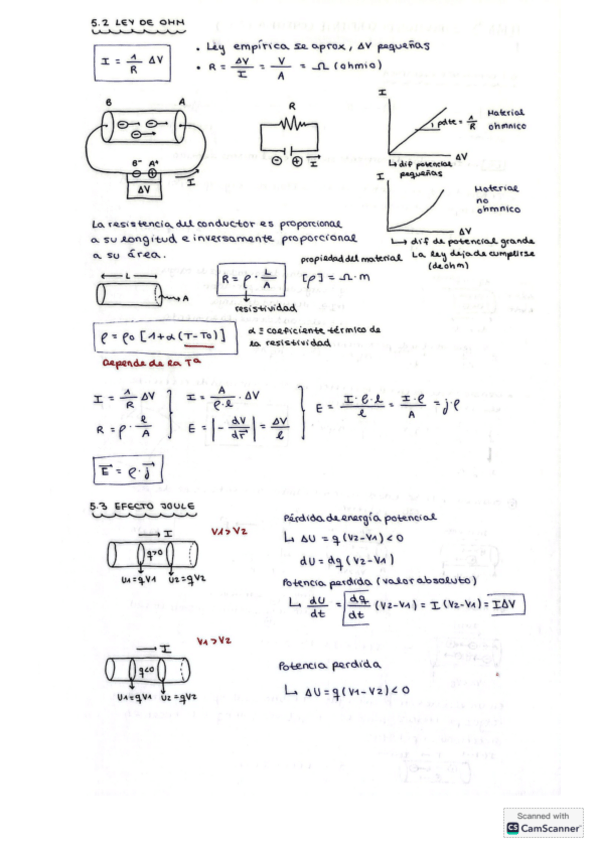 5.2 LEY DE OHM
I = 1/R ΔV
• Ley empírica se aprox, ΔV pequeñas
• R = ΔV/I = V/A = Ω (ohmio)
B A
B⁻ A⁺
ΔV
I
R
I
I
pdte = 1/R
Material ohmnico
ΔV
↳ dif potencial pequeñas
I
Material no ohmnico
ΔV
↳ dif de potencial grande
La ley deja de cumplirse (de ohm)
La resistencia del conductor es proporcional
a su longitud e inversamente proporcional
a su área.
L
A
R = ρ · L/A
resistividad
propiedad del material
[ρ] = Ω · m
ρ = ρ0 [1+α(T-T0)]
Depende de la Tª
α ≡ coeficiente térmico de
la resistividad
I = 1/R ΔV
R = ρ · l/A
I = A/ρ·l · ΔV
E = |- dV/dr| = ΔV/l
E = I·ρ·l/l = I·ρ/A = j·ρ
E = ρ · j
5.3 EFECTO JOULE
I
V1 > V2
q>0
U1=qV1 U2=qV2
Pérdida de energía potencial
↳ ΔU = q (V2-V1) < 0
dU = dq (V2-V1)
Potencia perdida (valor absoluto)
↳ dU/dt = dq/dt (V2-V1) = I (V2-V1) = IΔV
V1 > V2
I
q<0
U1=qV1 U2=qV2
Potencia perdida
↳ ΔU = q (V1-V2) < 0
Scanned with
CS CamScanner